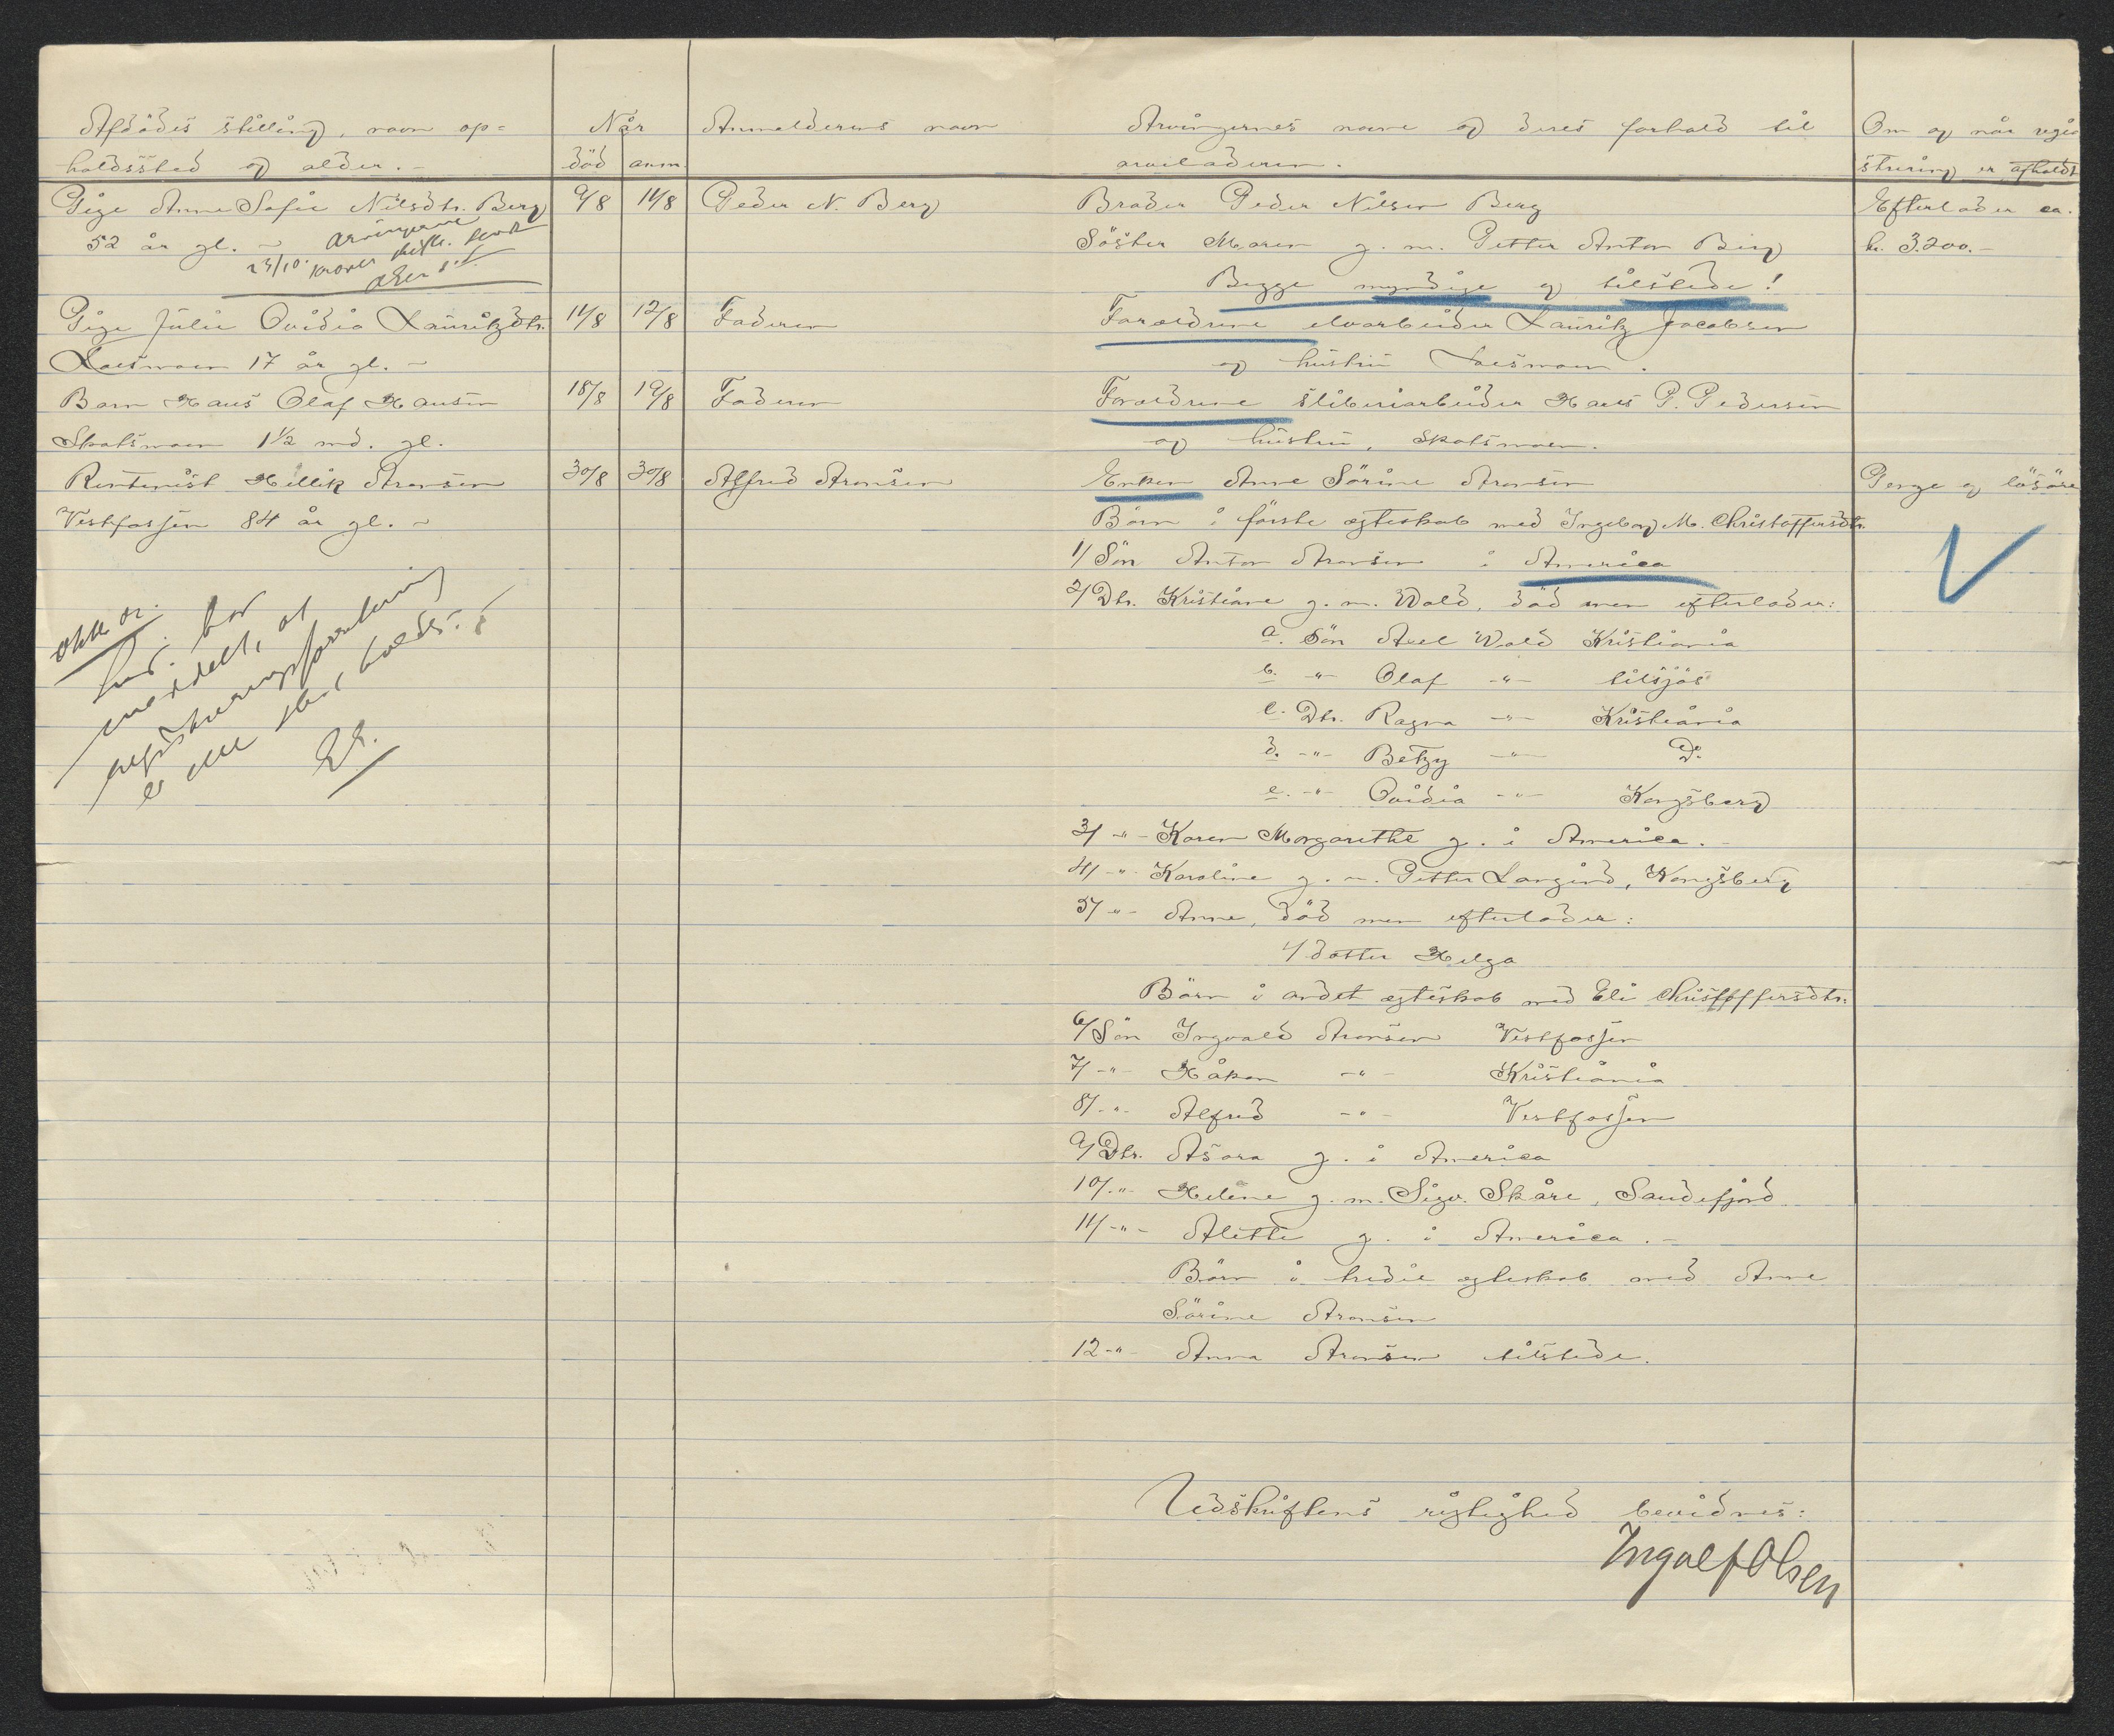 Afdödes stilling, navn op=
holdssted og alder. -
Når
död anm.
Anmelderens navn
Arvingernes navne og deres forhold til
arveladeren.
Om og når regi=
strering er afholdt
Pige Anne Sofie Nilsdtr. Berg
52 år gl. -
Arvingerne
23/10.
9/8 11/8
Peder N. Berg
Broder Peder Nilsen Berg
Söster Maren g. m. Petter Anton Berg
Begge myndige og tilstede!
Efterlader ca.
kr. 3.200.-
Pige Julie Ovidia Lauritzdtr.
Loesmoen 17 år gl. -
11/8 12/8
Faderen
Forældrene elvarbeider Lauritz Jacobsen
og hustru Loesmoen.
Barn Hans Olaf Hansen
Skotsmoen 1½ md. gl.
18/8 19/8
Faderen
Forældrene sliberiarbeider Hans P. Pedersen
og hustru, Skotsmoen.
Rentenist Hellik Aronsen
Vestfossen 84 år gl. -
30/8 30/8
Alfred Aronsen
Enken Anne Sörine Aronsen
Penge og lösöre
Börn i förste ægteskab med Ingeborg M. Christoffersdtr.
1/ Sön Anton Aronsen i America
2/ Dtr. Kristiane g. m. Wold, död men efterlader:
a. Sön Axel Wold Kristiania
b. -"- Olaf -"- tilsjös
c. Dtr. Ragna -"- Kristiania
d. -"- Betzy -"- Do.
e. -"- Ovidia -"- Kongsberg
3/ -"- Karen Margarethe g. i America. -
4/ -"- Karoline g. m. Petter Langerud, Kongsberg
5/ -"- Anne, död men efterlader:
1/ datter Helga
Börn i andet ægteskab med Eli Christoffersdtr:
6/ Sön Ingvald Aronsen Vestfossen
7/ -"- Håkon -"- Kristiania
8/ -"- Alfred -"- Vestfossen
9/ Dtr. Asora g. i America
10/ -"- Helene g. m. Sigv. Skåre, Sandefjord
11/ -"- Alette g. i America. -
Börn i tredie ægteskab med Anne
Sörine Aronsen
12 -"- Anna Aronsen tilstede.
har
meddelt, at
registreringsforretning
er ikke holdt.
Udskriftens rigtighed bevidnes:
Ingolf Olsen